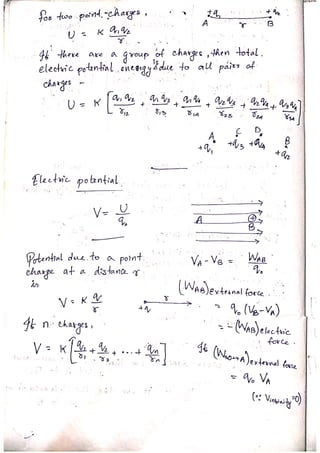 for two point-charges,
+q₁ +q₂
A r B
U = K q₁q₂/r
If there are a group of charges, then total
electric potential energy is due to all pairs of
charges -
U = K [q₁q₂/r₁₂ + q₁q₃/r₁₃ + q₁q₄/r₁₄ + q₂q₃/r₂₃ + q₂q₄/r₂₄ + q₃q₄/r₃₄]
A C D B
+q₁ +q₃ +q₄ +q₂
Electric potential
V = U/q₀
A
B
Potential due to a point
charge at a distance r
is
V = K q/r
+q r
If n charges,
V = K [q₁/r₁ + q₂/r₂ + ... + qₙ/rₙ]
V_A - V_B = W_AB/q₀
(W_AB) external force
= q₀ (V_B - V_A)
= - (W_AB) electric
force
If (W∞→A) external force
= q₀ V_A
(∵ V infinity = 0)